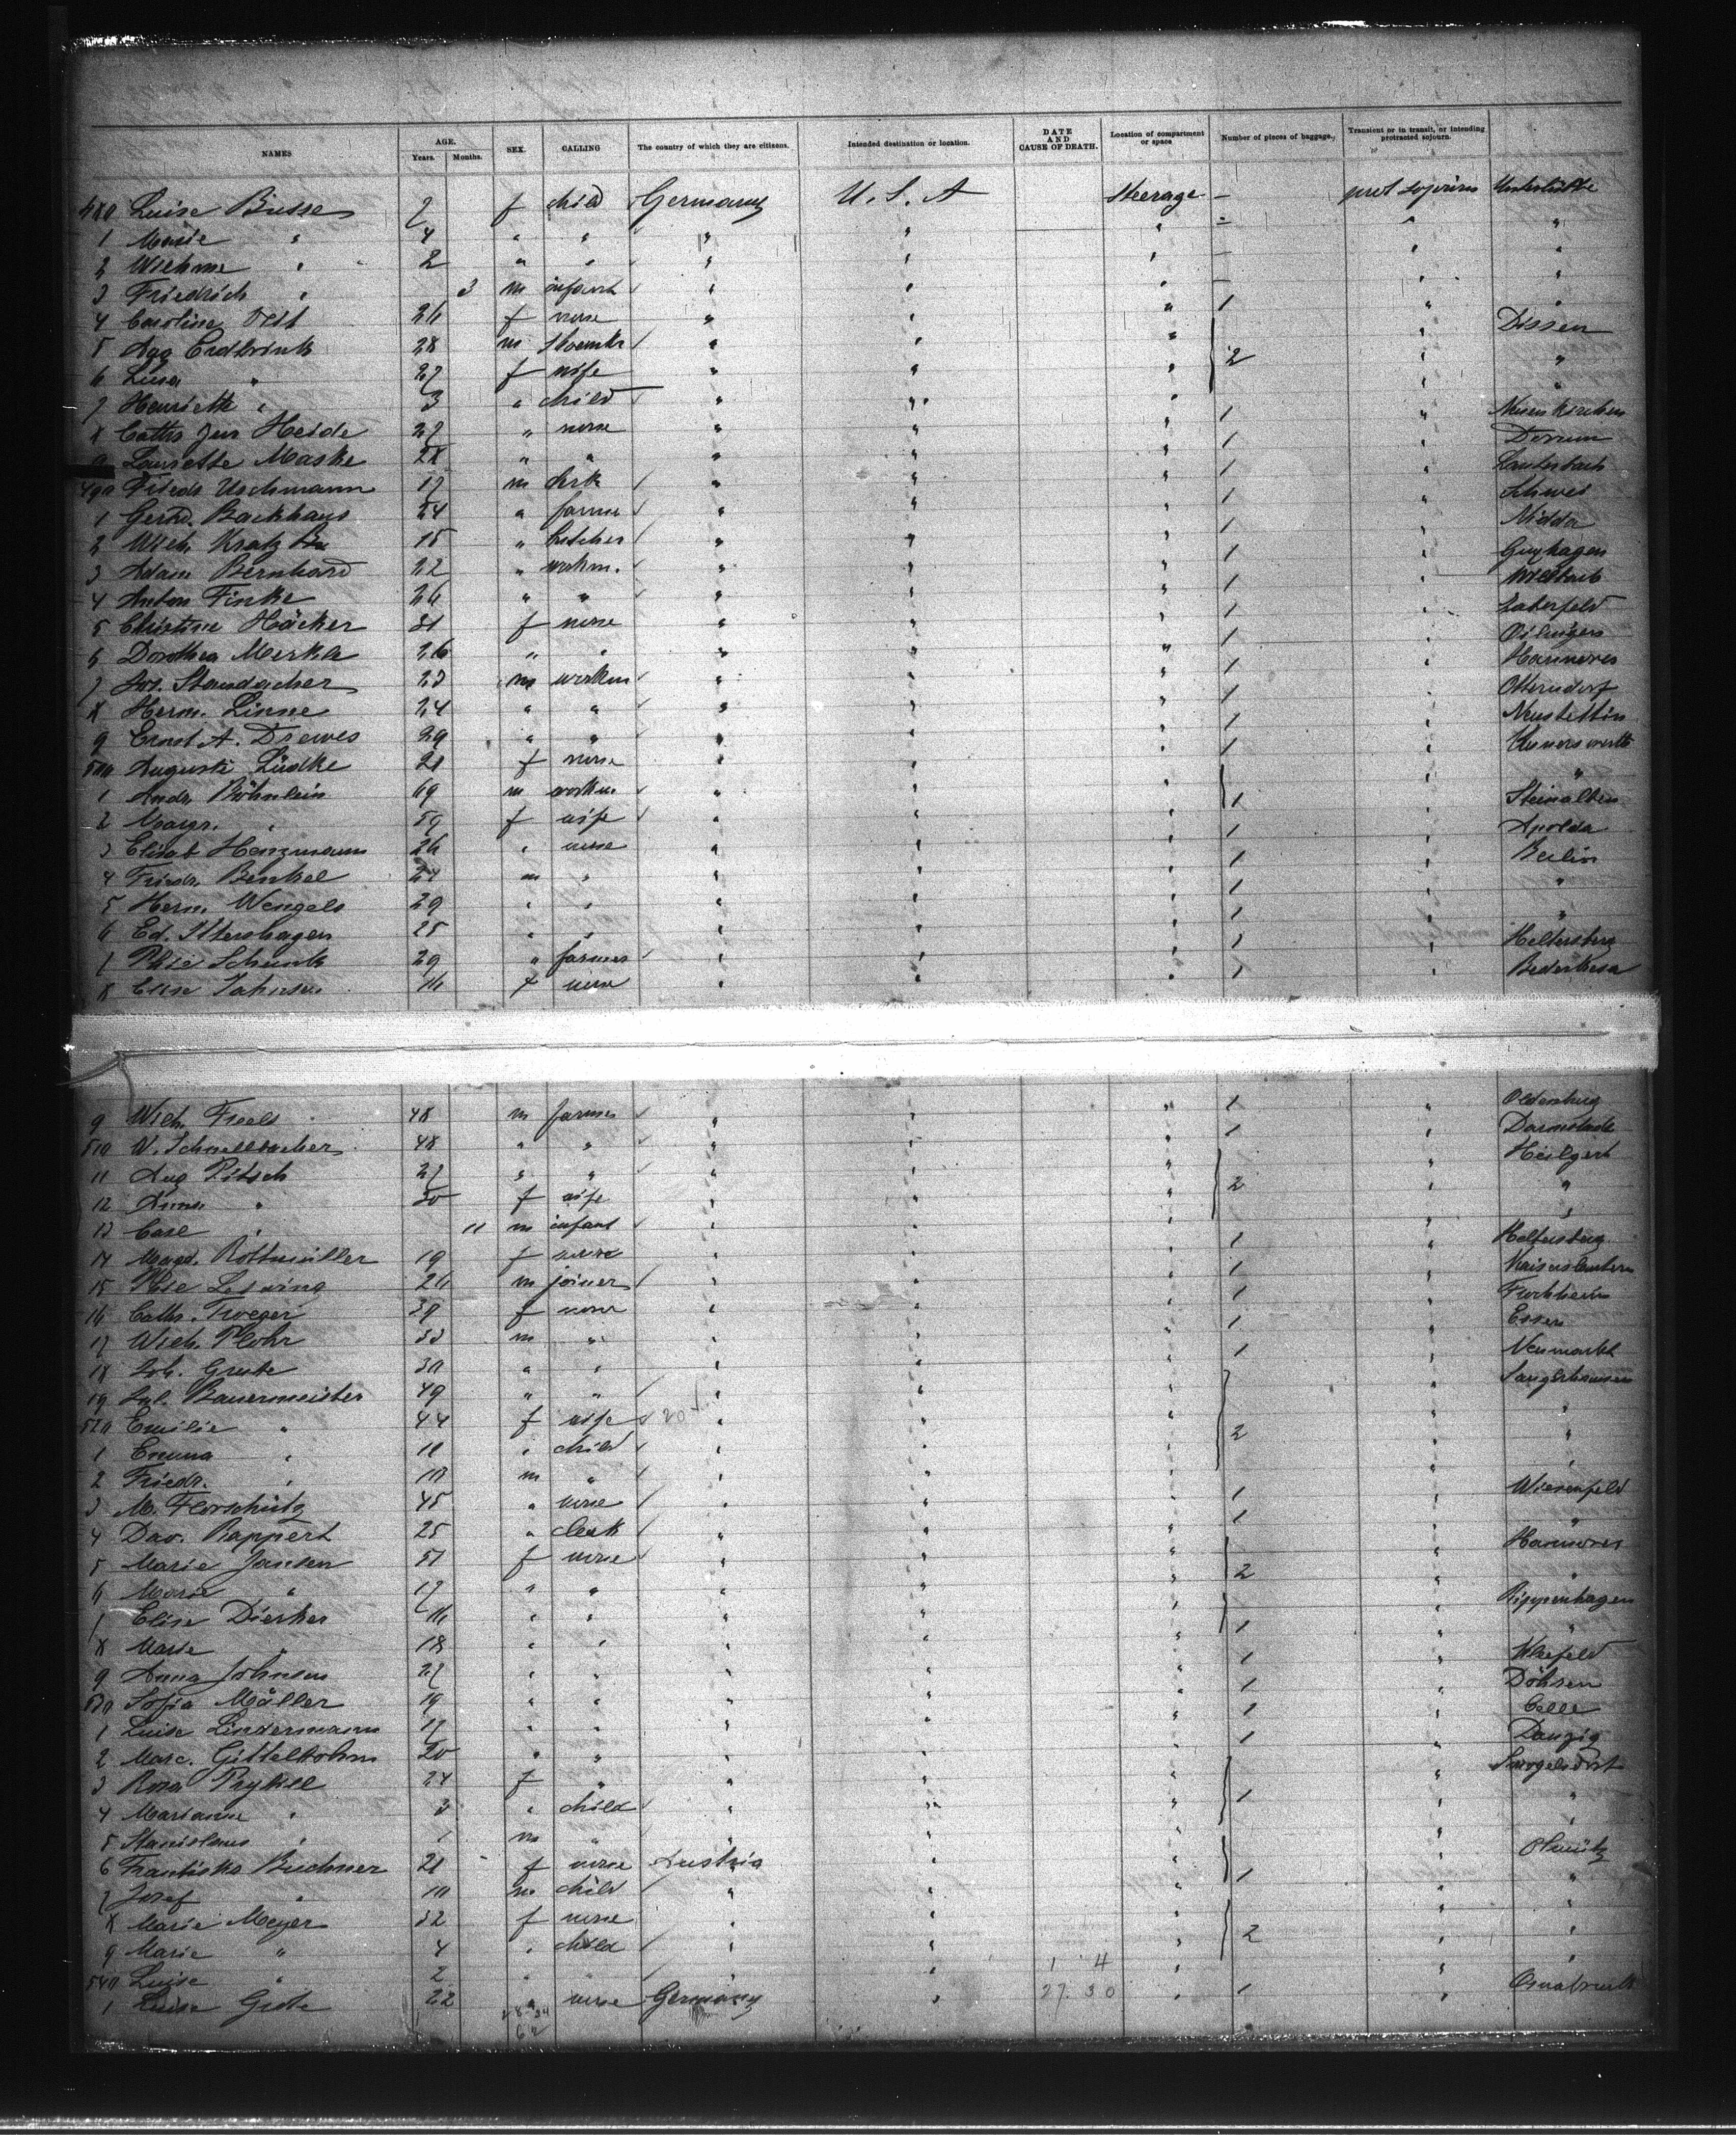 NAMES AGE. Years. Months. SEX. CALLING The country of which they are citizens. Intended destination or location. DATE AND CAUSE OF DEATH. Location of compartment or space Number of pieces of baggage. Transient or in transit, or intending protracted sojourn.
480 Luise Busse 7 f child Germany U. S. A Steerage - prot sojourn
1 Marie " 4 " " " " " - " "
2 Wilhme " 2 " " " " " - " "
3 Friedrich " 3 m infant " " " - " "
4 Caroline 26 f none " " " 1 " "
5 Aug Erdbrink 28 m Shoemkr " " " " Dissen
6 Lisa " 27 f wife " " " 2 " "
7 Henriette " 3 " child " " " " "
8 Cathr zur Heide 27 " none " " " 1 " Neuenkirchen
9 Laurette Maske 28 " " " " " 1 " Dorum
490 Friedr Uschmann 17 m clerk " " " 1 " Lauterbach
1 Gerhd. Backhaus 24 " farmer " " " 1 " Schwei
2 Wilh. Kratz 15 " butcher " " " 1 " Nidda
3 Adam Bernhard 22 " workm. " " " 1 " Guxhagen
4 Anton Finke 26 " " " " " 1 "
5 Christine Häcker 31 f none " " " 1 "
6 Dorothea Merkle 26 " " " " " 1 "
7 Jos. Staudacher 23 m workm " " " 1 " Hannover
8 Herm. Linne 24 " " " " " 1 " Otterndorf
9 Ernst A. Drewes 29 " " " " " 1 " Neustettin
500 Auguste Lüdke 21 f none " " " 1 "
1 Andr. Böhnlein 69 m workm. " " " " "
2 Margr. " 59 f wife " " " 1 " Steinalben
3 Elisab Henzmann 26 " none " " " 1 " Apolda
4 Friedr. Benkel 24 m " " " " 1 " Berlin
5 Herm. Wengels 29 " " " " " 1 " "
6 Ed. Ittershagen 25 " " " " " 1 " "
7 Phie Schunk 29 " farmer " " " 1 " Heltersberg
8 Elise Jahnsen 16 f none " " " 1 " Bederkesa
9 Wilh. Freels 48 m farmer " " " 1 " Oldenburg
510 W. Schnellbacher 48 " " " " " 1 " Darmstadt
11 Aug Pitsch 27 " " " " " "
12 Anna " 30 f wife " " " 2 " "
13 Carl " 11 m infant " " " " "
14 Magd. Rottmüller 19 f none " " " 1 " Heltersberg
15 26 m joiner " " " 1 " Kaiserslautern
16 Cath. Troeger 39 f none " " " 1 "
17 Wilh. Plohr 33 m " " " " 1 " Essen
18 Joh. Grube 30 " " " " " 1 " Neumarkt
19 Jul. Bauermeister 49 " " " " " " Sangerhausen
520 Emilie " 44 f wife " " " " "
1 Emma " 11 " child " " " 2 " "
2 Friedr. " 10 m " " " " " "
3 M. Florschütz 45 " none " " " 1 " Wiesenfeld
4 Dav. Rappert 25 " clerk " " " 1 " "
5 Marie Jansen 51 f none " " " " Hannover
6 Marie " 17 " " " " " 2 " "
7 Elise Dierker 16 " " " " " " Rippenhagen
8 Marie " 18 " " " " " 1 " "
9 Anna Johnsen 27 " " " " " 1 "
530 Sofia Müller 19 " " " " " 1 " Döhren
1 Luise Lindermann 17 " " " " " 1 " Celle
2 Marc. Gittelsohn 20 " " " " " 1 " Danzig
3 Rosa 24 f " " " " "
4 Marianne " 3 " child " " " 1 " "
5 Stanislaus " 1 m " " " " " "
6 Frantiska Buchner 21 f none Austria " " " Olmütz
7 Josef " 10 m child " " " 1 " "
8 Marie Meyer 32 f none " " " " "
9 Marie " 4 " child " " " 2 " "
540 Luise " 2 " " " " 1 4 " " "
1 Luise Grote 22 " none Germany " 27 30 " 1 " Osnabruck